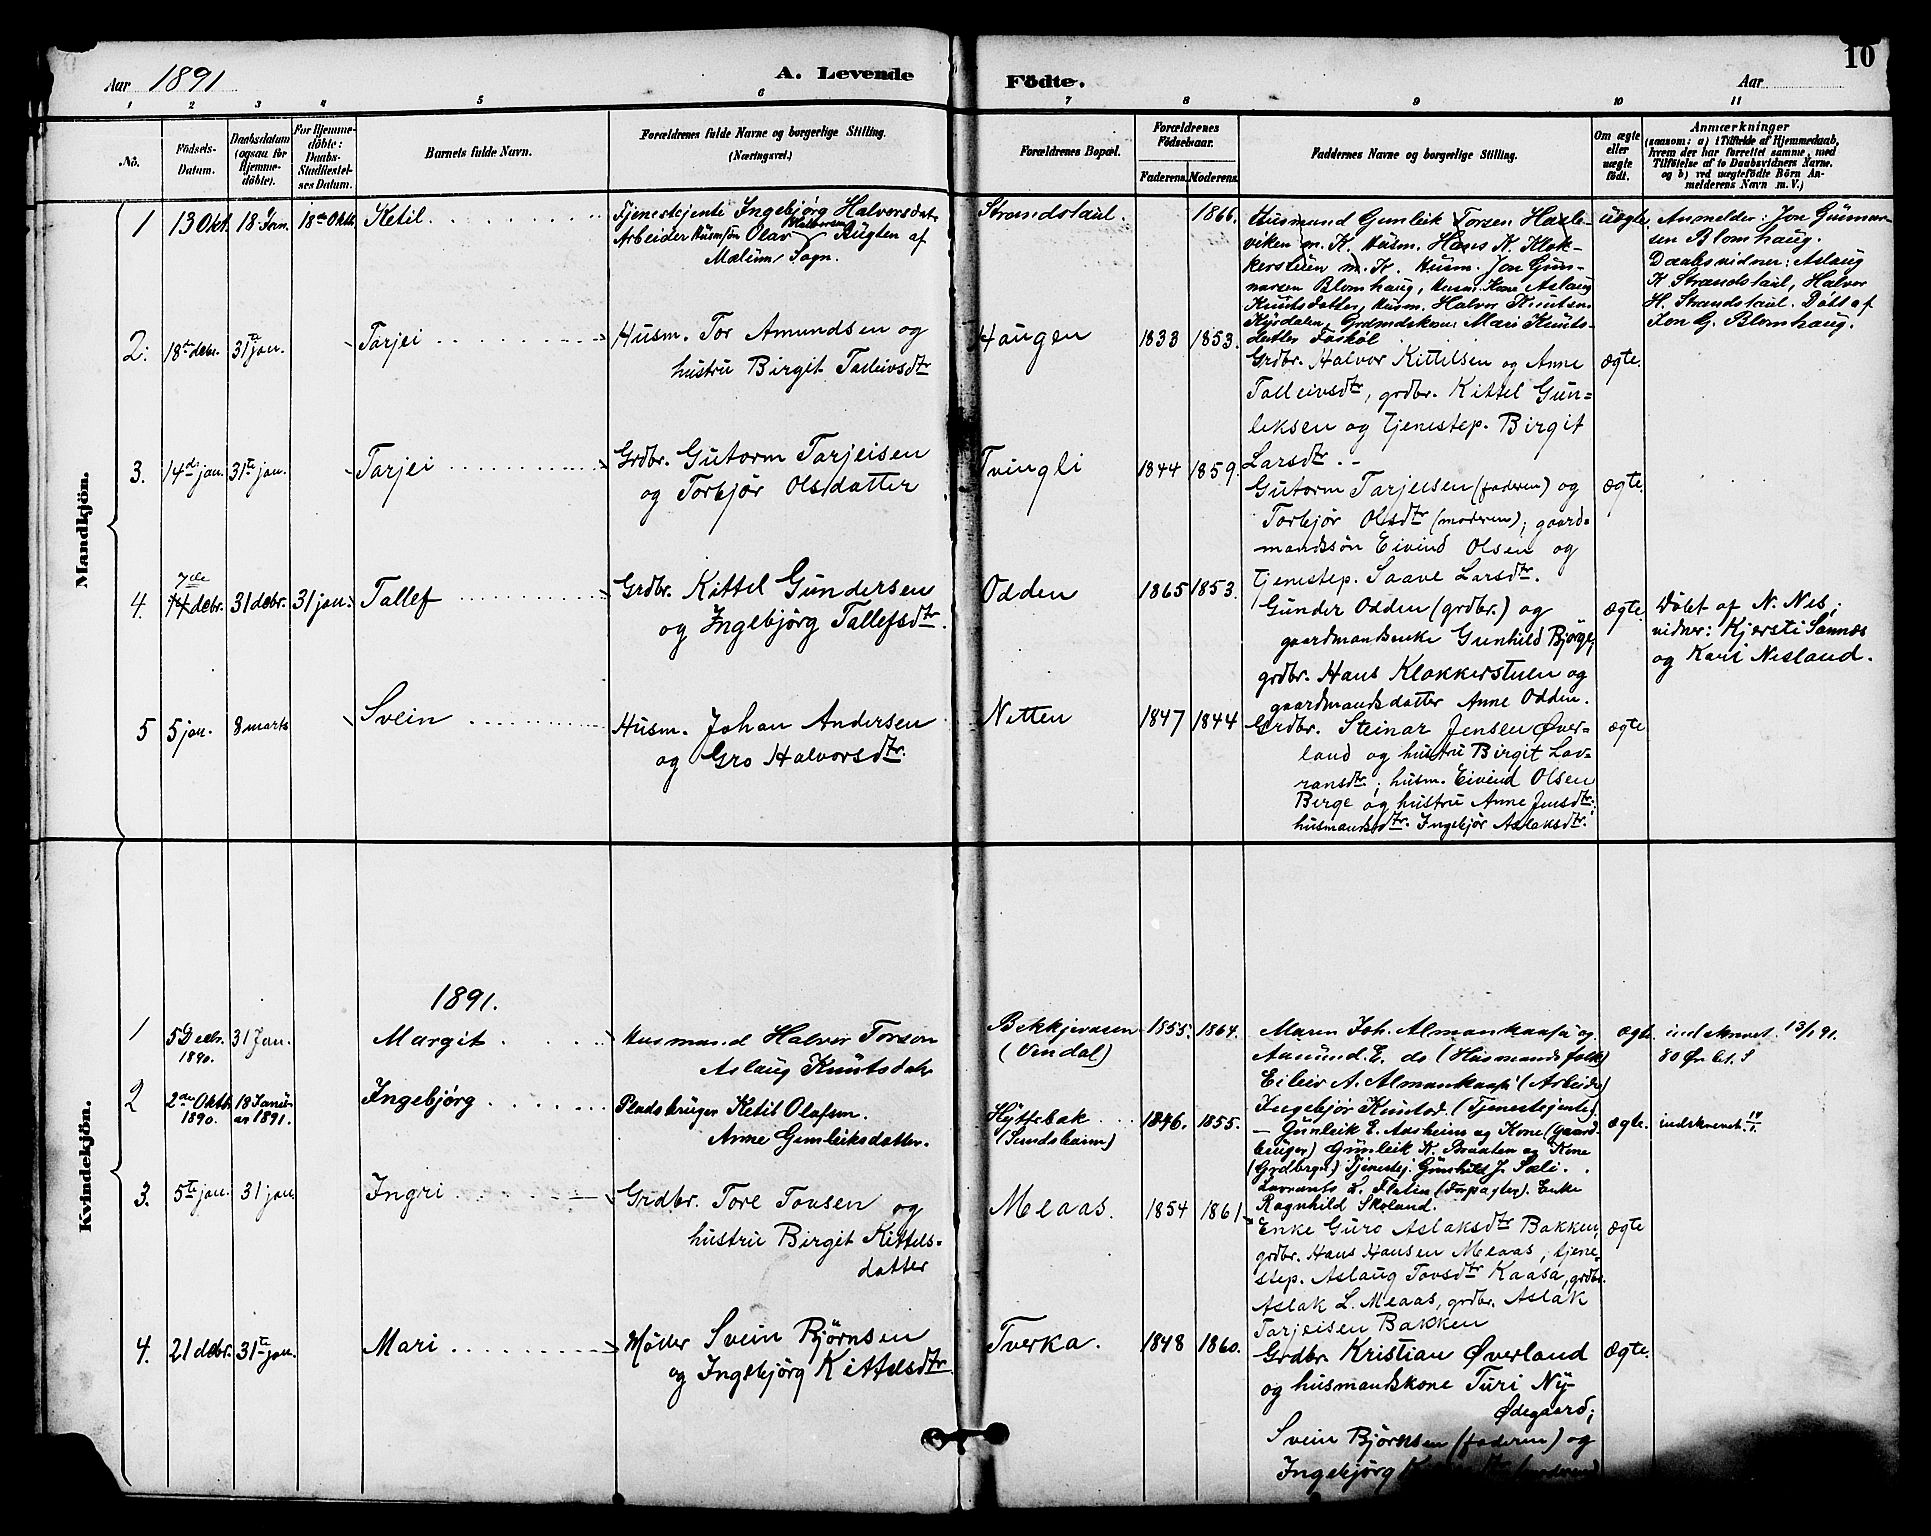 10
Aar 1891
A. Levende
Födte.
Aar
1 2 3 4 5 6 7 8 9 10 11
No.
Födsels-
Datum.
Daabsdatum
(ogsaa for
Hjemme-
döbte).
For Hjemme-
döbte:
Daabs-
Stadfæstel-
ses Datum.
Barnets fulde Navn.
Forældrenes fulde Navne og borgerlige Stilling.
(Næringsvei.)
Forældrenes Bopæl.
Forældrenes
Födselsaar.
Faderens. Moderens.
Faddernes Navne og borgerlige Stilling.
Om ægte
eller
uægte
födt.
Anmærkninger
(saasom: a) i Tilfælde af Hjemmedaab,
hvem der har forrettet samme, med
Tilföielse af to Daabsvidners Navne.
og b) ved uægtefödte Börn An-
melderens Navn m. V.)
Mandkjön.
1
13 Okt.
18 Jan.
18de Oktb.
Ketil.
Tjenestejente Ingebjørg Halversdat.
Arbeider Husm.søn Olav Halvorsen Rugten af
Mælum Sogn.
Strandstaul.
1866.
Husmand Gunleik Torsen Hasle-
viken m. K. Husm. Hans K. Klok-
kersteien m. K. Husm. Jon Gun-
narsen Blomhaug, Husm. Kone Aslaug
Knutsdatter, Husm. Halvor Knutsen
Kyrdalen, Grdmdskone Mari Knuts-
datter
uægte.
Anmelder: Jon Gunnar-
sen Blomhaug.
Daabsvidner: Aslaug
K Strandstaul, Halvor
H. Strandstaul. Døbt af
Jon G. Blomhaug.
2.
18de debr.
31te jan.
Tarjei
Husm. Tor Amundsen og
hustru Birgit Talleivsdtr
Haugen
1833
1853.
Grdbr. Halvor Kittilsen og Anne
Talleivsdtr, grdbr. Kittel Gun-
leksen og Tjenestep. Birgit
Larsdtr. -
ægte.
3.
14de jan.
31te jan.
Tarjei
Grdbr. Gutorm Tarjeisen
og Torbjør Olsdatter
Tvingli
1844
1859.
Gutorm Tarjeisen (faderen) og
Torbjør Olsdtr (moderen); gaard-
mandssøn Eivind Olsen og
Tjenestep. Saave Larsdtr.
ægte.
4.
7de
14 debr.
31 debr.
31 jan.
Tallef
Grdbr. Kittel Gundersen
og Ingebjørg Tallefsdtr.
Odden
1865
1853.
Gunder Odden (grdbr.) og
gaardmandsenke Gunhild Bjørge,
grdbr. Hans Klokkerstuen og
gaardmandsdatter Anne Odden.
ægte.
Døbt af N. Nes;
vidner: Kjersti Sannes
og Kari Nesland.
5
5 jan.
8 marts
Svein
Husm. Johan Andersen
og Gro Halvorsdtr.
Netten
1847
1844
Grdbr. Steinar Jensen Øver-
land og hustru Birgit Lav-
ransdtr; husm. Eivind Olsen
Berge og hustru Anne Jensdtr;
husmandsdtr. Ingebjør Aslaksdtr.
ægte
Kvindekjön.
1891.
1
5 Decbr.
1890.
31 Jan.
Margit
Husmand Halvor Torson
Aslaug Knutsdatr
Bekkjevasen
(Vendal)
1855.
1864.
Maren Joh. Almankaasa og
Aasund E. do (Husmandsfolk)
Eileiv A. Almankaas (Arbeider)
Ingebjør Knutsd. (Tjenestejente)
ægte.
indskrevet 13/1 91.
2
2den Oktb.
1890.
18 Janu-
ar 1891.
Ingebjørg
Pladsbruger Ketil Olafsen.
Anne Gunleiksdatter.
Hyttebak
(Sundsbarm)
1846.
1855.
- Gunleik E. Aasheim og Kone (Gaard-
bruger) Gunleik K. Braaten og Kone
(Grdbrgr) Tjenestej. Gunhild J. Sæli.
Lavrants L. Flatin (Forpagter). Enke
Ragnhild Skoland.
ægte.
indskrevet
3.
5te jan.
31 jan.
Ingri
Grdbr. Tore Tovsen og
hustru Birgit Kittels-
datter
Meaas.
1854
1861
Enke Guro Aslaksdtr Bakken,
grdbr. Hans Hansen Meaas, tjene-
step. Aslaug Tovsdtr Kaasa, grdbr.
Aslak L. Meaas, grdbr. Aslak
Tarjeisen Bakken
ægte
4.
21 debr.
31te jan.
Mari
Møller Svein Bjørnsen
og Ingebjørg Kittelsdtr
Tverka.
1848
1860.
Grdbr. Kristian Øverland
og husmandskone Turi Ny-
Ødegaard;
Svein Bjørnsen (faderen) og
Ingebjørg
ægte.